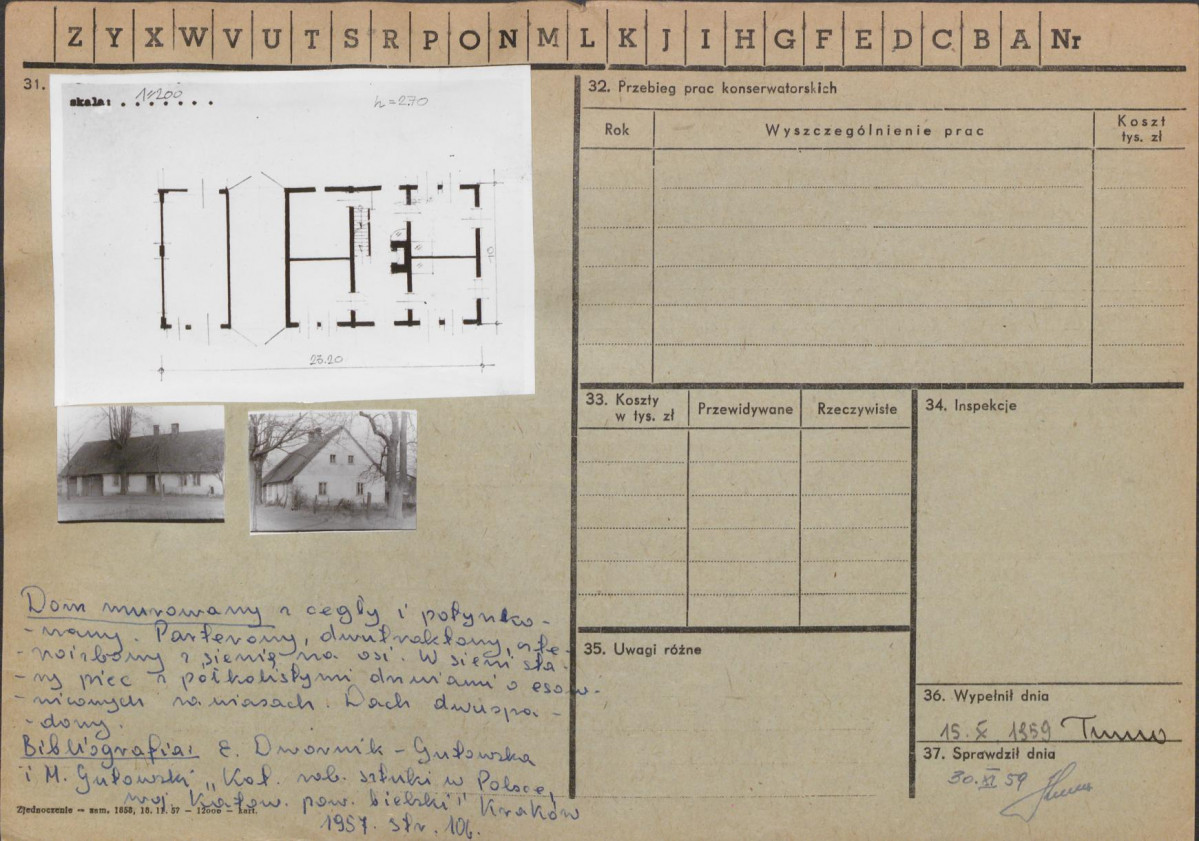 Z Y X W V U T S R P O N M L K J I H G F E D C B A Nr
31.
skala: 1:200
h = 270
10
23.20
Dom murowany z cegły i potynko-
-wany. Parterowy, dwutraktowy, czte-
-roizbowy z sienią na osi. W sieni sta-
-ry piec z półkolistymi drzwiami o esow-
-nicowych zawiasach. Dach dwuspa-
-dowy.
Bibliografia: E. Dwornik-Gutowska
i M. Gutowski „Kat. zab. sztuki w Polsce,
woj. Katow. pow. bielski" Kraków
1957. str. 106.
Zjednoczenie — zam. 1858, 16. 11. 57 — 12000 — kart.
32. Przebieg prac konserwatorskich
Rok Wyszczególnienie prac Koszt tys. zł
33. Koszty w tys. zł Przewidywane Rzeczywiste
34. Inspekcje
35. Uwagi różne
36. Wypełnił dnia
15. X. 1959
37. Sprawdził dnia
30. XI 59